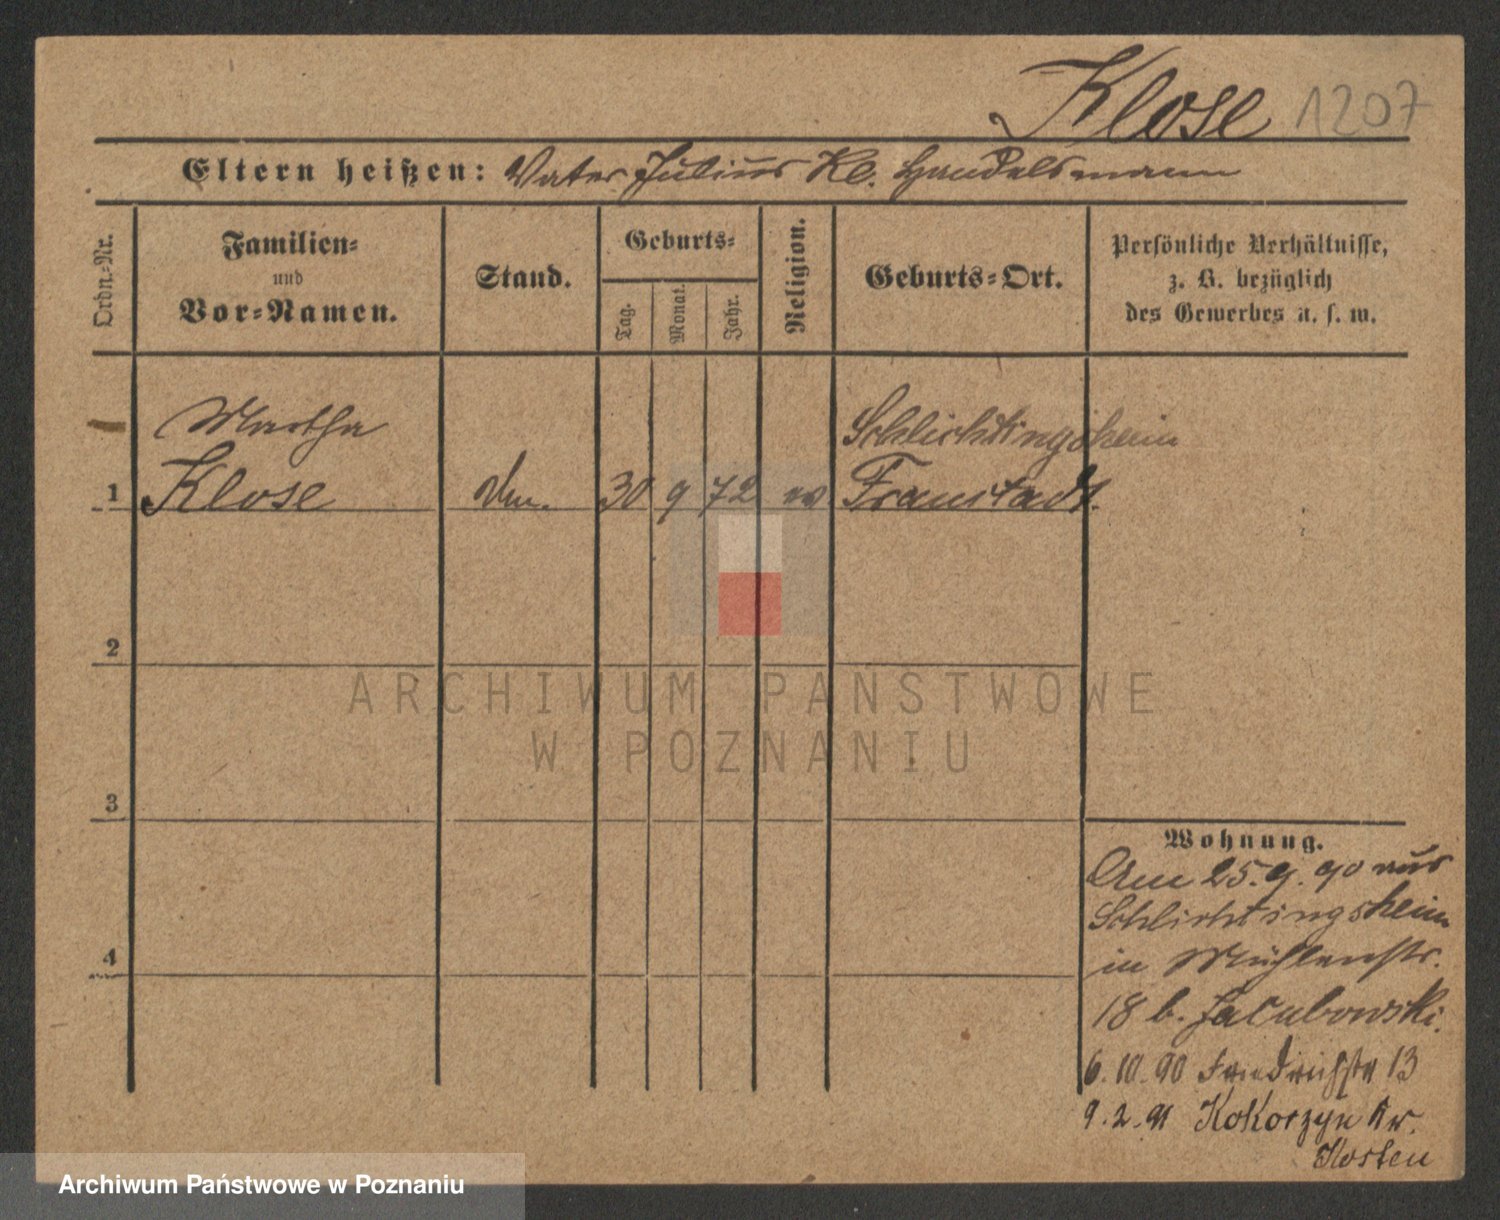 Klose 1207
Eltern heißen: Vater Julius Kl. Handelsmann
Ordn.-Nr.
Familien-
und
Vor-Namen.
Stand.
Geburts-
Tag.
Monat.
Jahr.
Religion.
Geburts-Ort.
Persönliche Verhältnisse,
z. B. bezüglich
des Gewerbes u. s. w.
Martha
Schlichtingsheim
1 Klose 30 9 72 ev Fraustadt.
2
3
4
Wohnung.
Am 25.9.90 aus
Schlichtingsheim
in Mühlenstr.
18 b. Jacubowski.
6.10.90 Friedrichstr 13
9.2.91 Kokorzyn Kr.
Kosten
ARCHIWUM PAŃSTWOWE
W POZNANIU
Archiwum Państwowe w Poznaniu